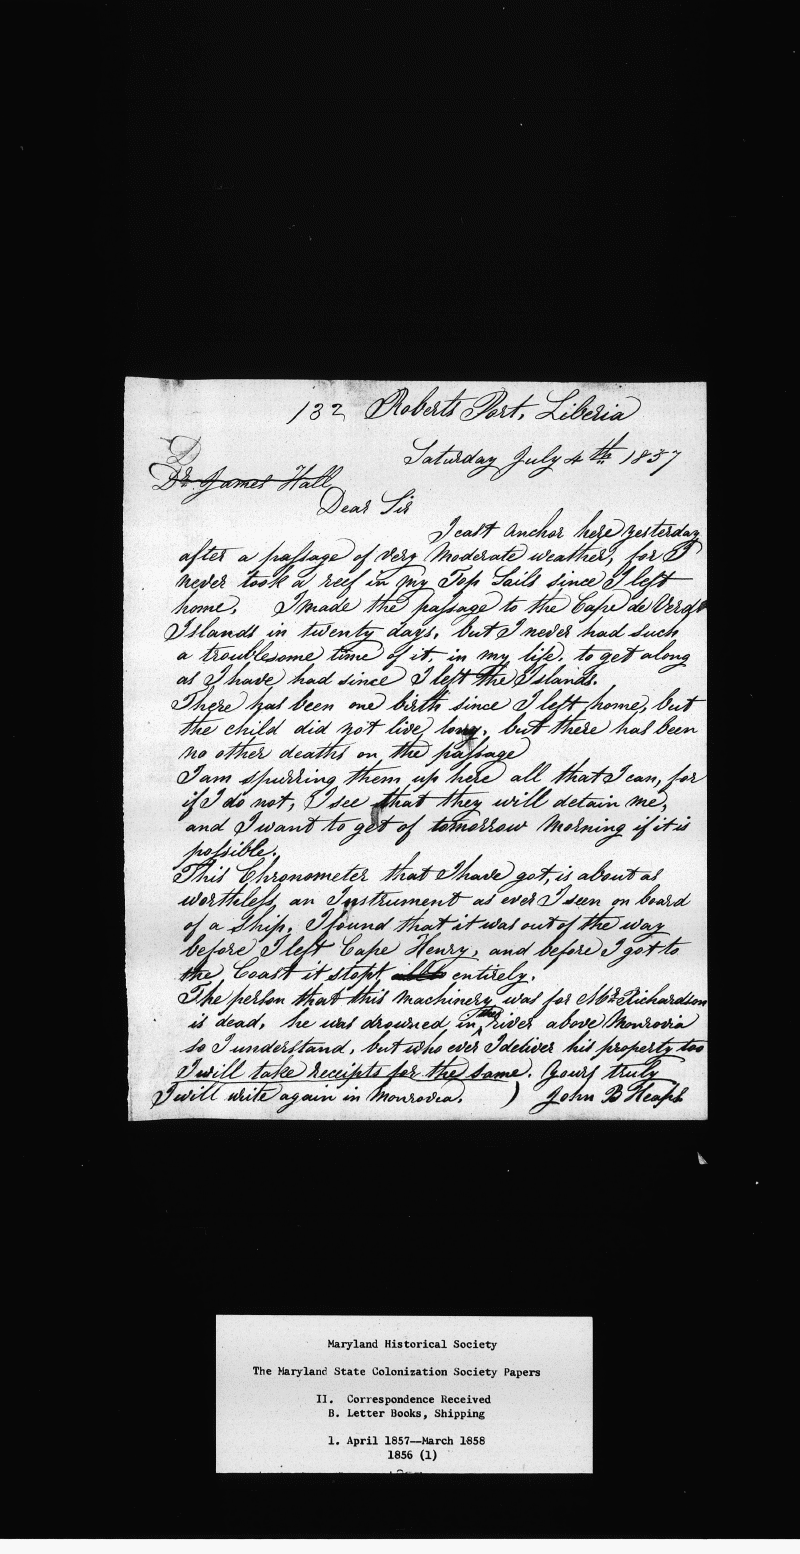 132 Roberts Port, Liberia
Saturday July 4th 1857
Dr. James Hall
Dear Sir
I cast anchor here yesterday
after a passage of very moderate weather, for I
never took a reef in my Top Sails since I left
home. I made the passage to the Cape de Verde
Islands in twenty days, but I never had such
a troublesome time of it, in my life, to get along
as I have had since I left the Islands.
There has been one birth since I left home, but
the child did not live long, but there has been
no other deaths on the passage
I am spurring them up here all that I can, for
if I do not, I see that they will detain me,
and I want to get of tomorrow morning if it is
possible.
This Chronometer that I have got, is about as
worthless an Instrument as ever I seen on board
of a Ship. I found that it was out of the way
before I left Cape Henry, and before I got to
the Coast it stopt entirely.
The person that this machinery was for Mr. Richardson
is dead, he was drowned in the river above Monrovia
so I understand, but who ever I deliver his property too
I will take receipts for the same. Yours truly
I will write again in Monrovia. ) John B Heaps
Maryland Historical Society
The Maryland State Colonization Society Papers
II. Correspondence Received
B. Letter Books, Shipping
1. April 1857--March 1858
1856 (1)